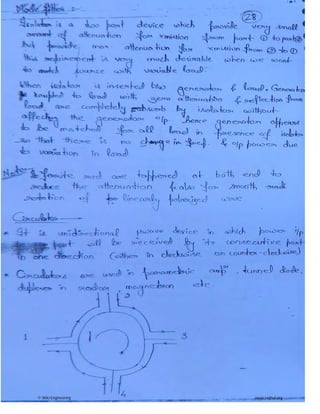 (28)
Isolator is a two port device which provide very small
amount of attenuation for xmission from port ① to port ②
but provide, max attenuation for xmission from ② to ①
this requirement is very much desirable when we want
to match source with variable load.
When isolator is inserted b/w generator & load. Generator
is coupled to load with zero attenuation & reflection from
load are completely absorb by isolator without
affecting the generator o/p. Hence generator appears
to be matched for all load in presence of isolator
so that there is no change in freq. & o/p power due
to variation in load.
Note: ferrite rod are tappered at both end to
reduce the attenuation & also for smooth
rotation of linearly polarized wave
Circulator
* It is unidirectional μwave device in which power i/p
port will be received by its consecutive port
in one direction (either in clockwise or counter-clockwise)
* Circulators are used in parametric amp, tunnel diode,
duplexer in radar, magnetron etc.
2
1
3
4